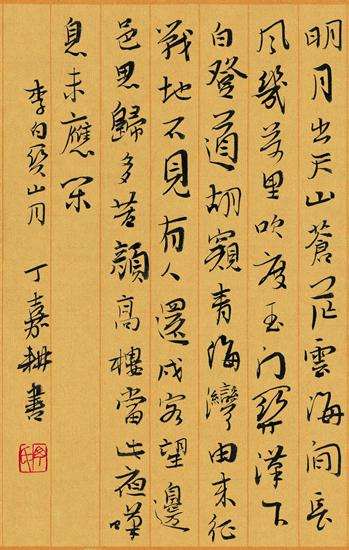 明月出天山蒼茫雲海間長
風幾萬里吹度玉門關漢下
白登道胡窺青海灣由来征
戰地不見有人還戍客望邊
邑思歸多苦顔高樓當此夜嘆
息未應閑
李白關山月 丁嘉耕書